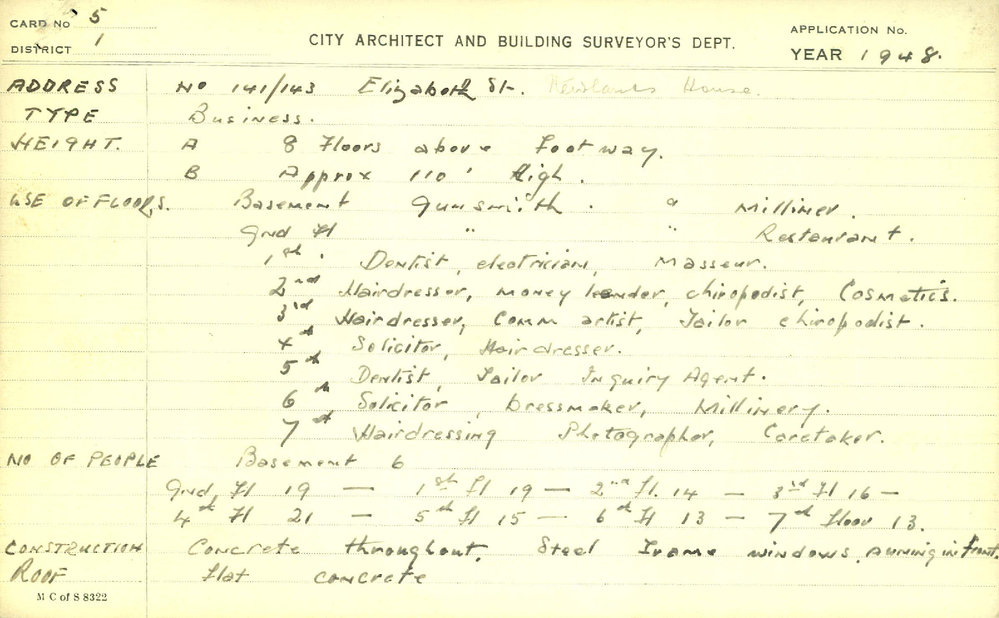 CARD No 5
DISTRICT 1
CITY ARCHITECT AND BUILDING SURVEYOR'S DEPT.
APPLICATION No.
YEAR 1948.
ADDRESS No 141/143 Elizabeth St. Newlands House.
TYPE Business.
HEIGHT. A 8 Floors above Footway.
B Approx 110' High.
USE OF FLOORS. Basement Gunsmith. " Milliner.
Gnd Fl " " Restaurant.
1st. Dentist, electrician, Masseur.
2nd Hairdresser, money lender, chiropodist, Cosmetics.
3rd Hairdresser, Comm artist, Tailor chiropodist.
4th Solicitor, Hairdresser.
5th Dentist, Tailor Inquiry Agent.
6th Solicitor, Dressmaker, Millinery.
7th Hairdressing Photographer, Caretaker.
NO OF PEOPLE Basement 6
Gnd, Fl 19 — 1st Fl 19 — 2nd Fl. 14 — 3rd Fl 16 —
4th Fl 21 — 5th Fl 15 — 6th Fl 13 — 7th Floor 13.
CONSTRUCTION Concrete throughout, Steel Frame windows, Awning in Front.
ROOF Flat concrete
M C of S 8322